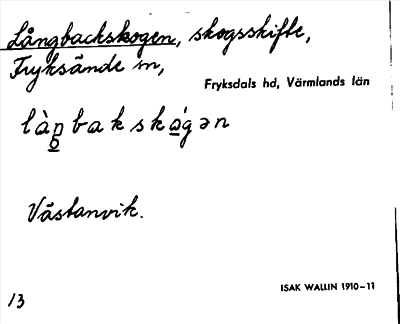 Långbackskogen, skogsskifte,
Fryksände sn,
Fryksdals hd, Värmlands län
Västanvik.
ISAK WALLIN 1910-11
13